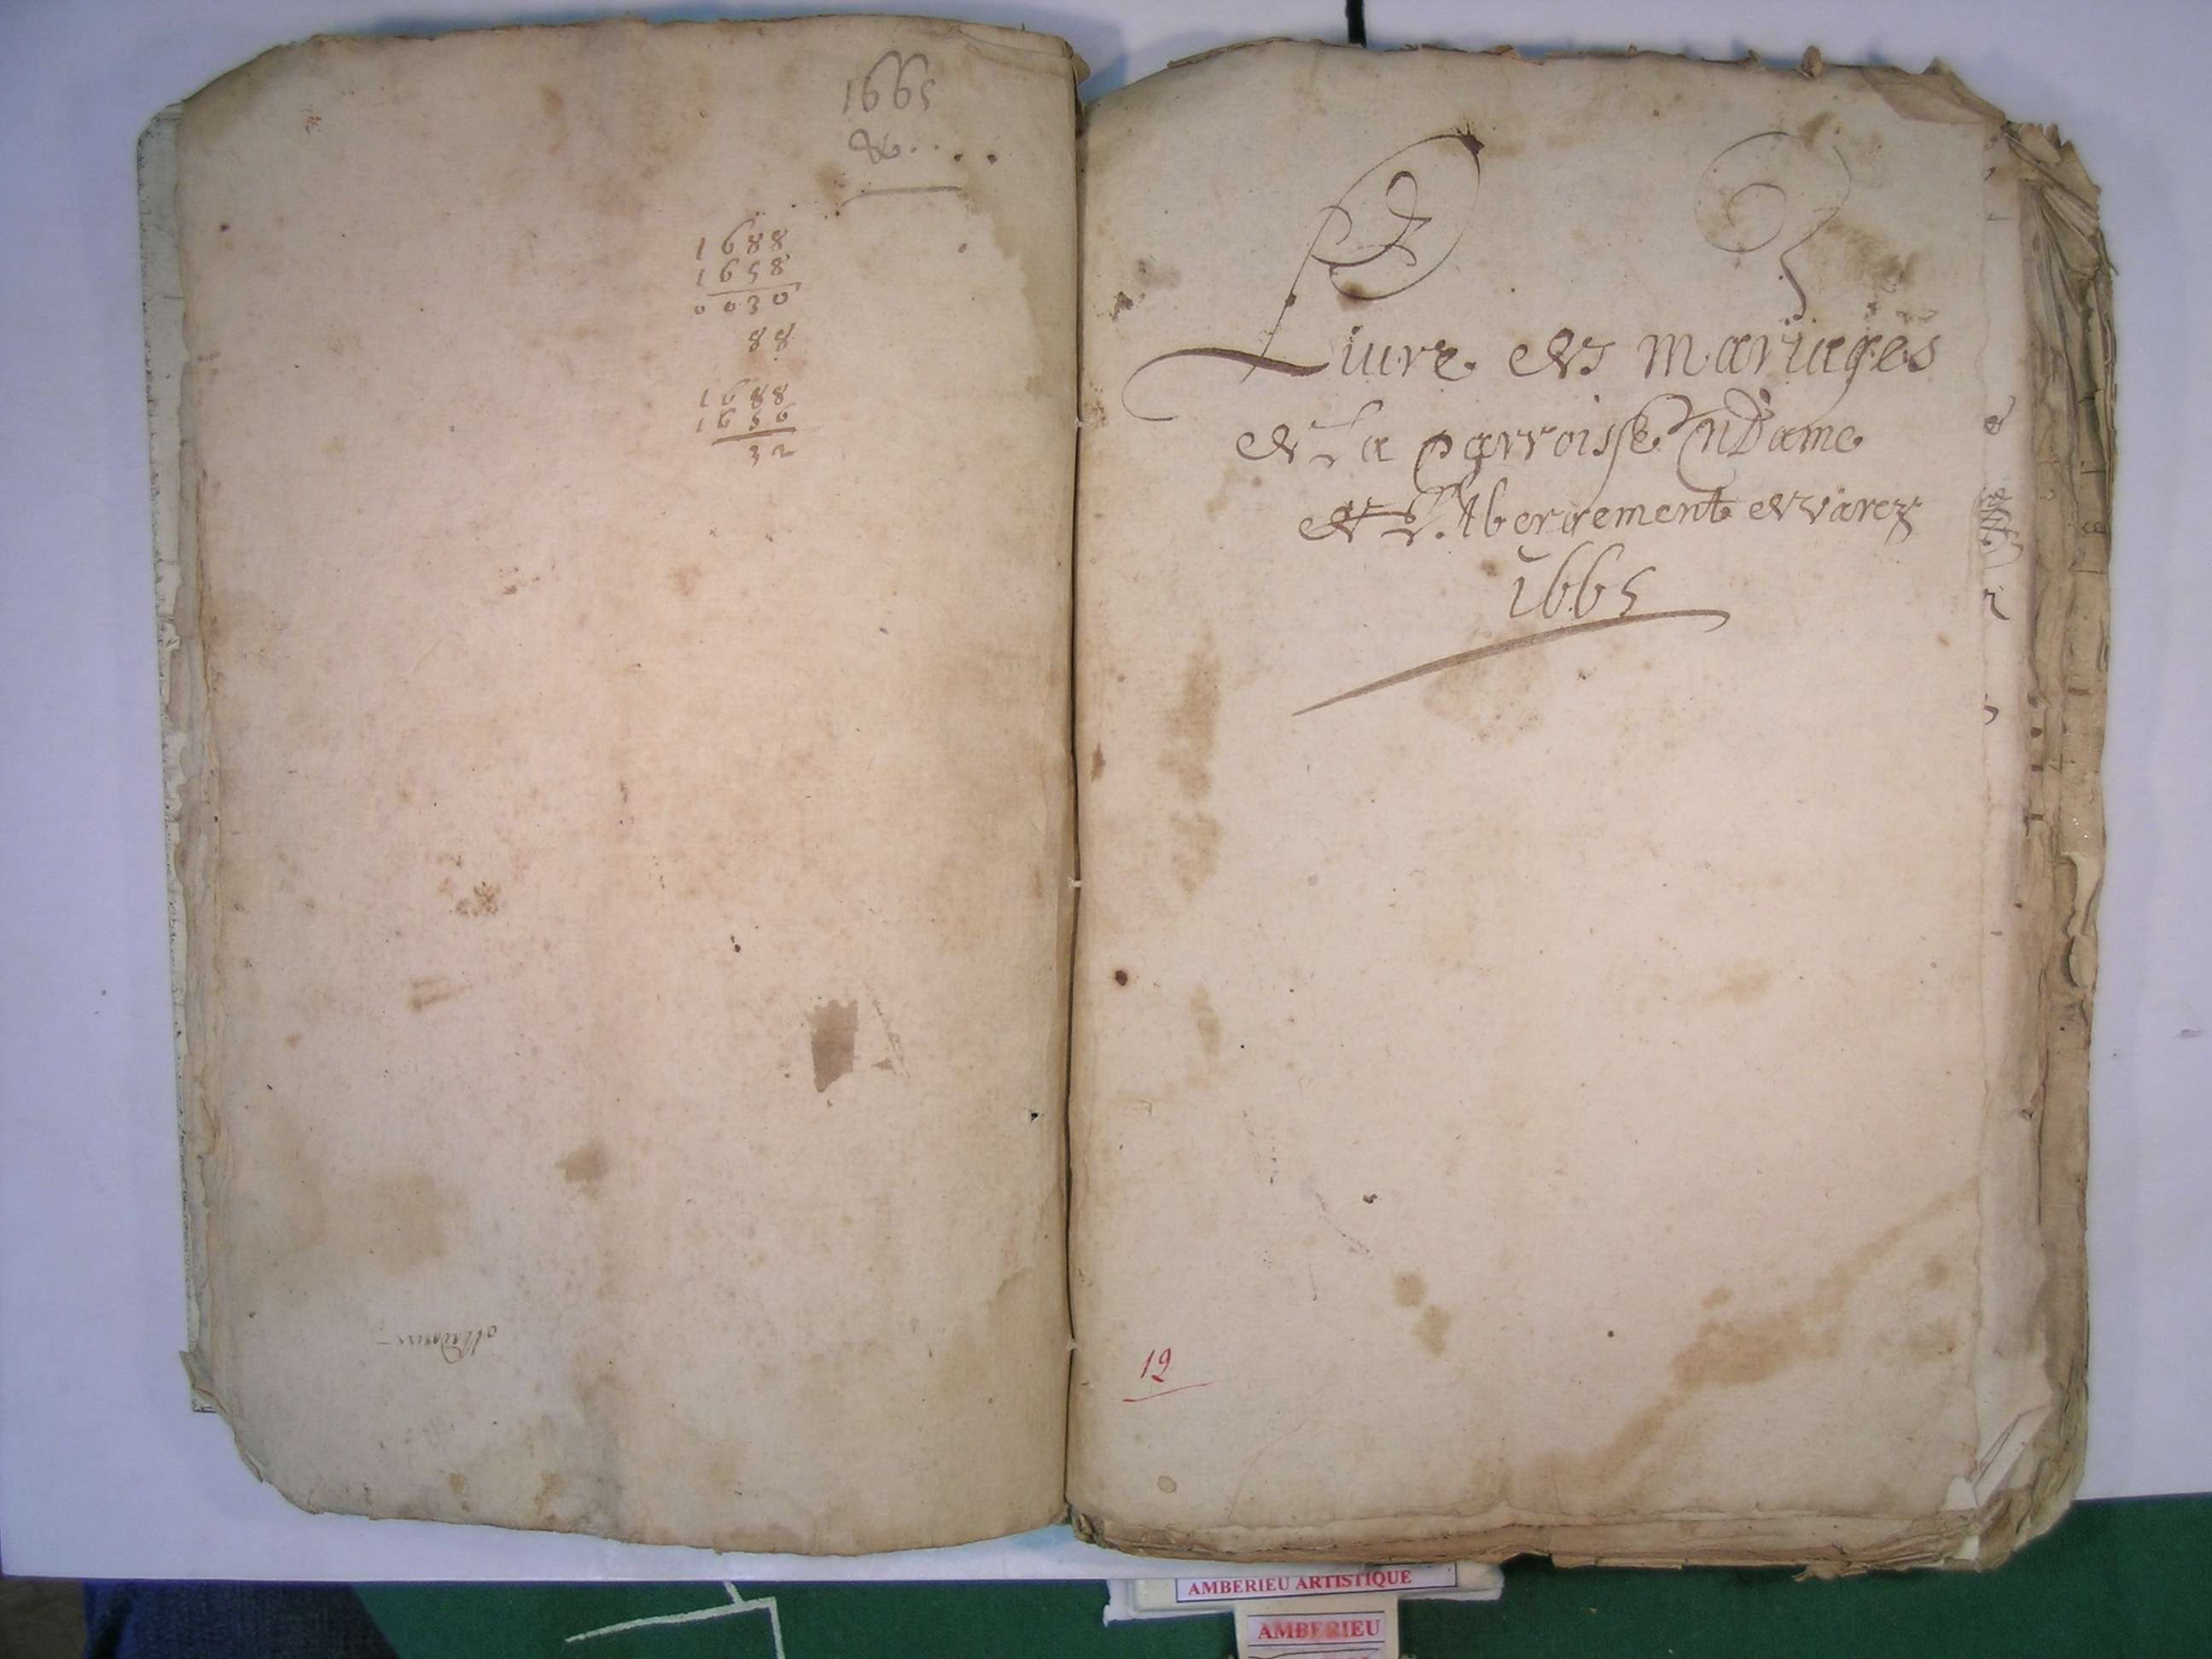 1665
&c....
1688
1658
0030
88
1688
1656
32
Liure des mariages
de La parroisse nDame
de L'Abergement de varez
1665
12
AMBERIEU ARTISTIQUE
AMBERIEU